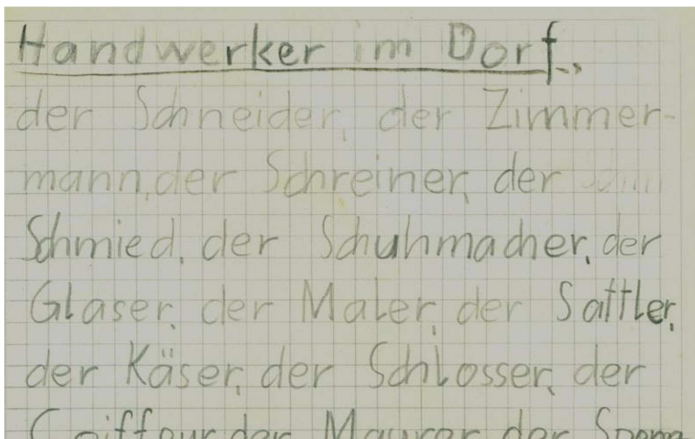 Handwerker im Dorf.
der Schneider, der Zimmer-
mann, der Schreiner, der
Schmied, der Schuhmacher, der
Glaser, der Maler, der Sattler,
der Käser, der Schlosser, der
Coiffeur, der Maurer, der